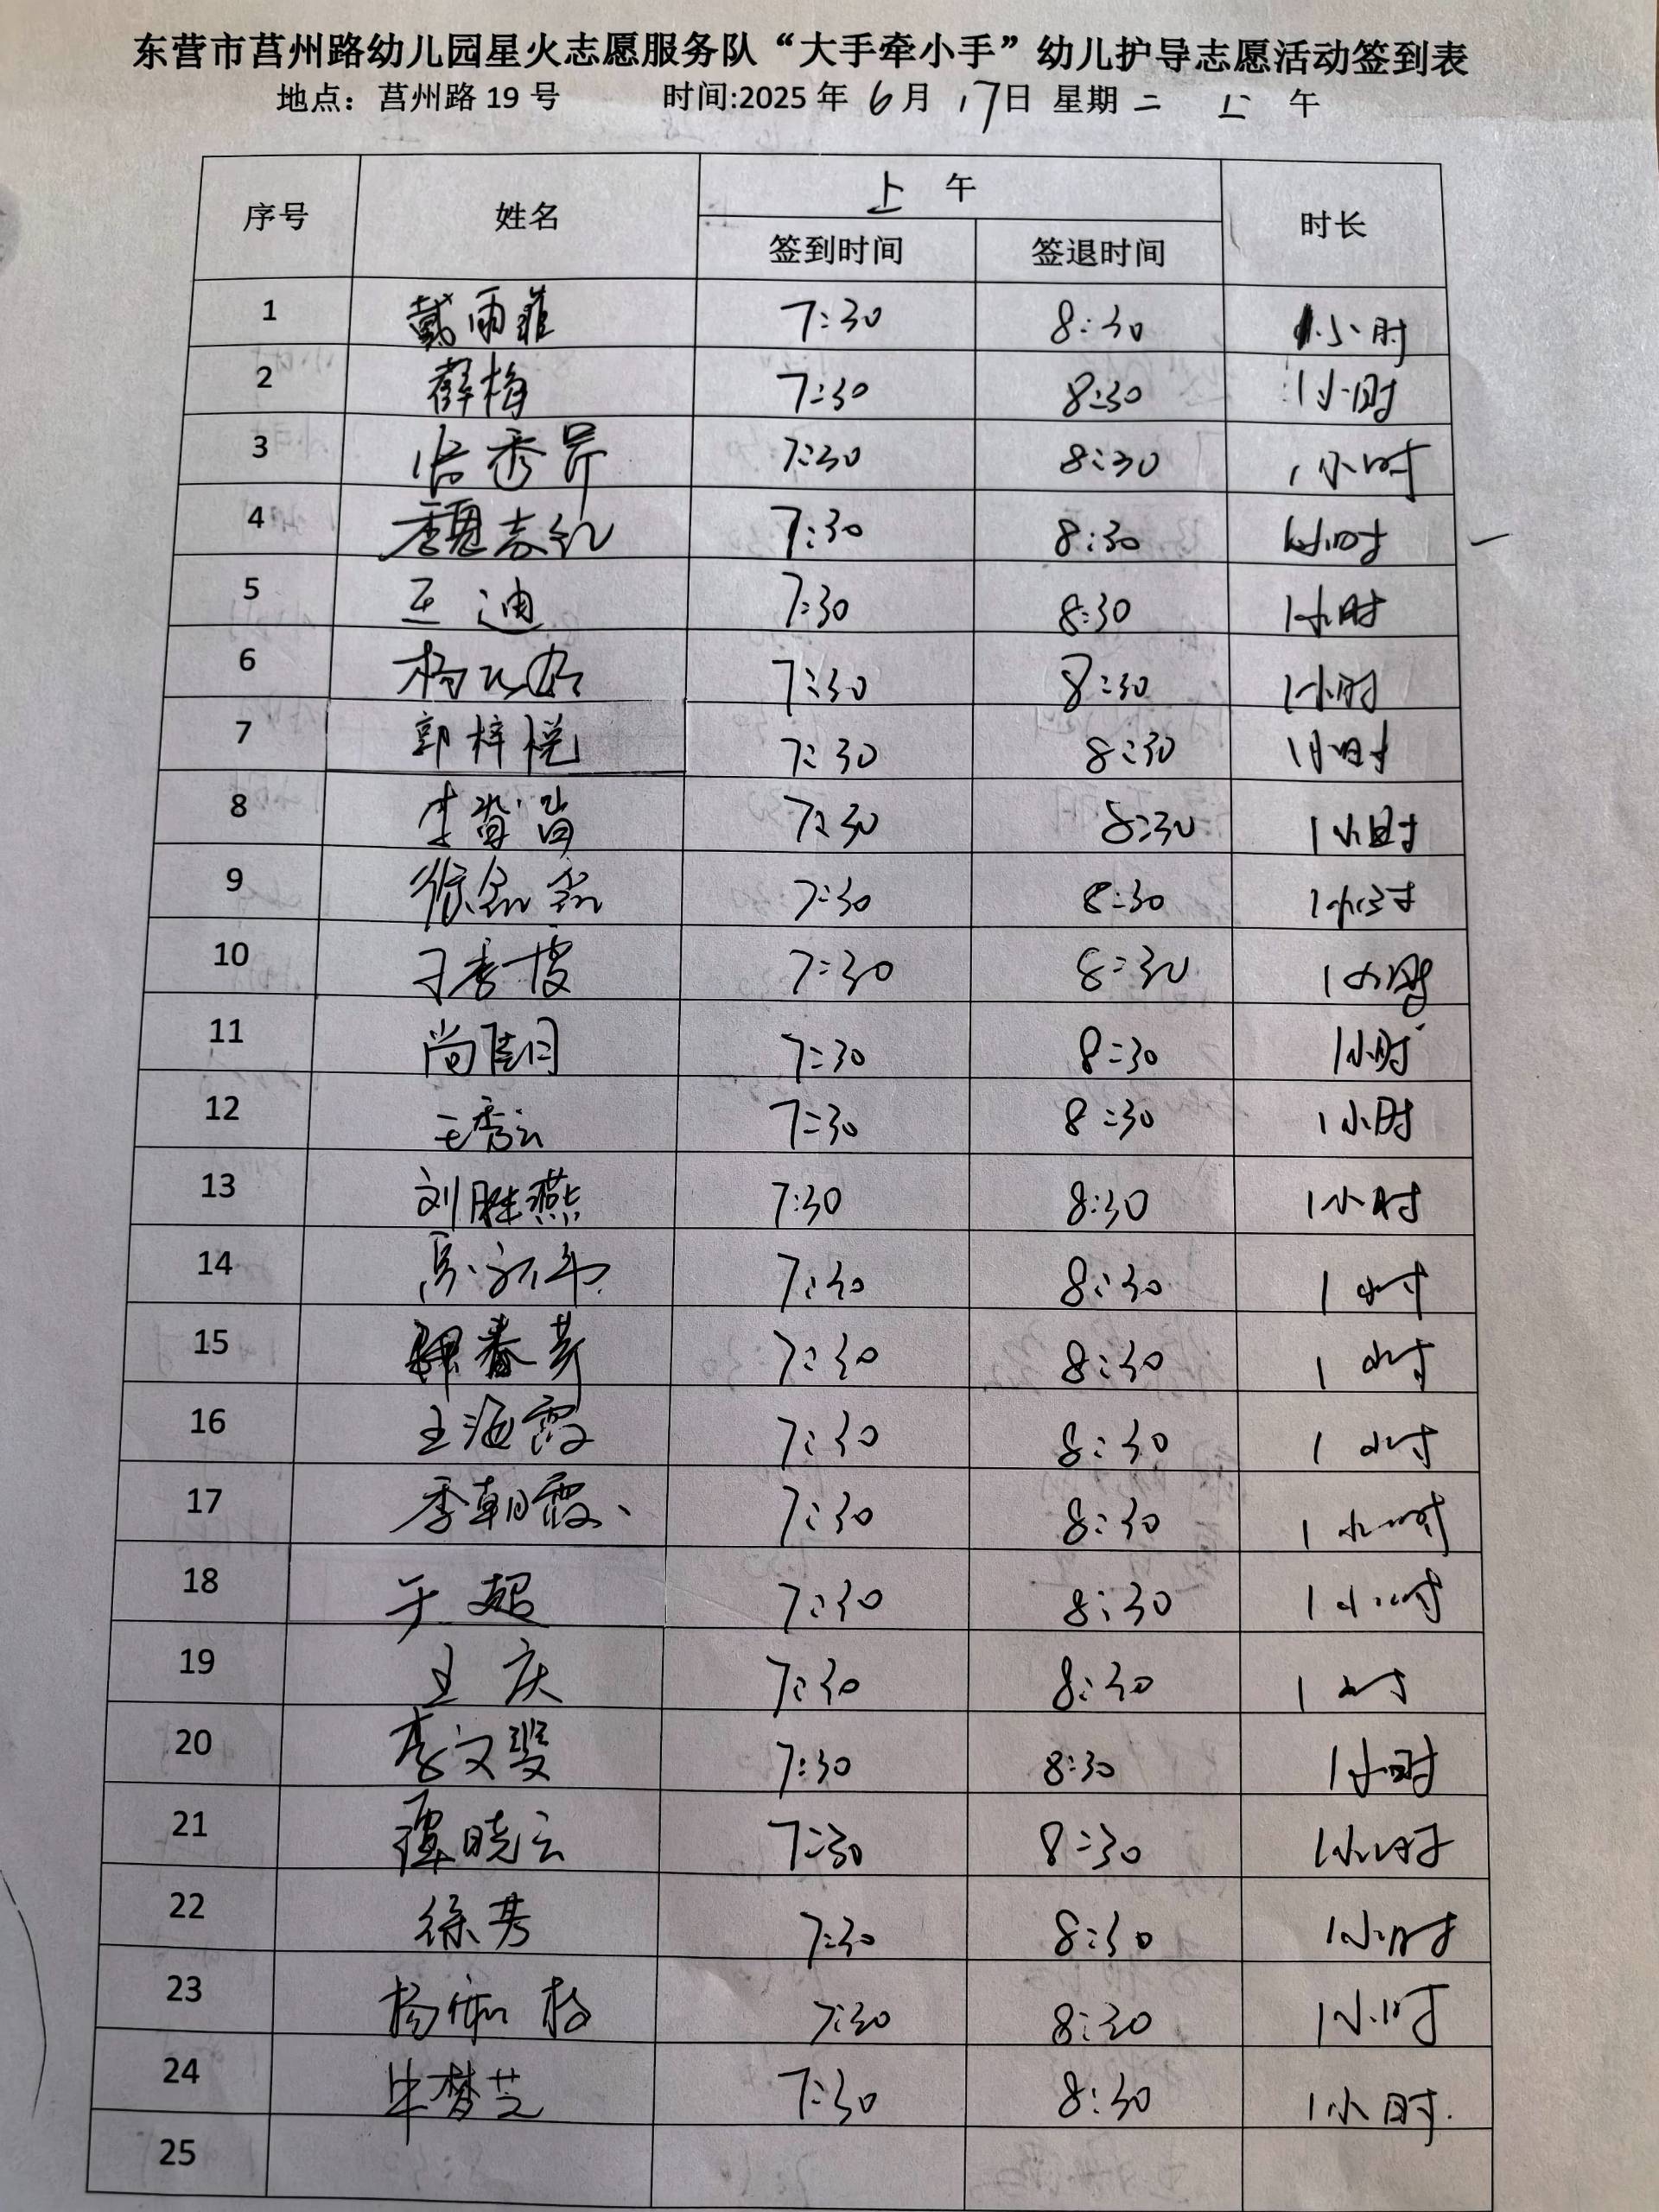 东营市莒州路幼儿园星火志愿服务队“大手牵小手”幼儿护导志愿活动签到表
地点：莒州路 19 号 时间:2025 年 6 月 17 日 星期 二 上 午
序号 姓名 上 午 时长
签到时间 签退时间
1 戴雨菲 7:30 8:30 1小时
2 薛梅 7:30 8:30 1小时
3 秀芹 7:30 8:30 1小时
4 魏 7:30 8:30 1小时
5 王迪 7:30 8:30 1小时
6 杨 7:30 8:30 1小时
7 郭梓悦 7:30 8:30 1小时
8 李 7:30 8:30 1小时
9 徐 7:30 8:30 1小时
10 王 7:30 8:30 1小时
11 尚 7:30 8:30 1小时
12 王秀云 7:30 8:30 1小时
13 刘胜燕 7:30 8:30 1小时
14 7:30 8:30 1小时
15 春芳 7:30 8:30 1小时
16 王海霞 7:30 8:30 1小时
17 季朝霞 7:30 8:30 1小时
18 于超 7:30 8:30 1小时
19 王庆 7:30 8:30 1小时
20 李文 7:30 8:30 1小时
21 晓云 7:30 8:30 1小时
22 徐芳 7:30 8:30 1小时
23 杨 7:30 8:30 1小时
24 毕梦芝 7:30 8:30 1小时.
25